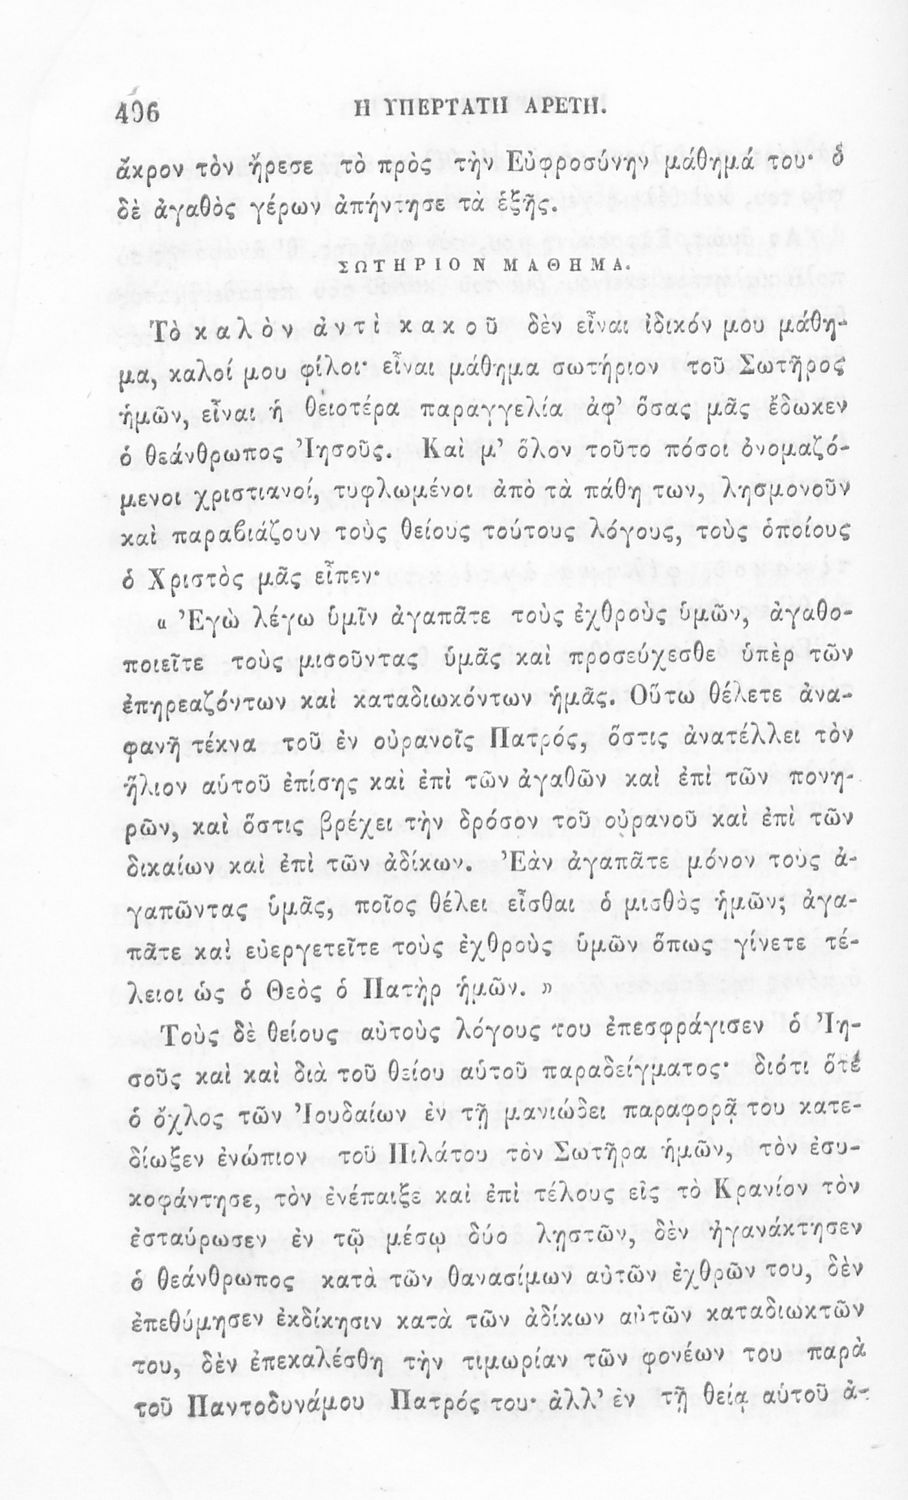 496 Η ΥΠΕΡΤΑΤΗ ΑΡΕΤΗ.
ἄκρον τὸν ἤρεσε τὸ πρὸς τὴν Εὐφροσύνην μάθημά του· ὁ
δὲ ἀγαθὸς γέρων ἀπήντησε τὰ ἑξῆς.
ΣΩΤΗΡΙΟΝ ΜΑΘΗΜΑ.
Τὸ καλὸν ἀντὶ κακοῦ δὲν εἶναι ἰδικόν μου μάθη-
μα, καλοί μου φίλοι· εἶναι μάθημα σωτήριον τοῦ Σωτῆρος
ἡμῶν, εἶναι ἡ θειοτέρα παραγγελία ἀφ’ ὅσας μᾶς ἔδωκεν
ὁ θεάνθρωπος Ἰησοῦς. Καὶ μ’ ὅλον τοῦτο πόσοι ὀνομαζό-
μενοι χριστιανοί, τυφλωμένοι ἀπὸ τὰ πάθη των, λησμονοῦν
καὶ παραβιάζουν τοὺς θείους τούτους λόγους, τοὺς ὁποίους
ὁ Χριστὸς μᾶς εἶπεν·
« Ἐγὼ λέγω ὑμῖν ἀγαπᾶτε τοὺς ἐχθροὺς ὑμῶν, ἀγαθο-
ποιεῖτε τοὺς μισοῦντας ὑμᾶς καὶ προσεύχεσθε ὑπὲρ τῶν
ἐπηρεαζόντων καὶ καταδιωκόντων ἡμᾶς. Οὕτω θέλετε ἀνα-
φανῆ τέκνα τοῦ ἐν οὐρανοῖς Πατρός, ὅστις ἀνατέλλει τὸν
ἥλιον αὑτοῦ ἐπίσης καὶ ἐπὶ τῶν ἀγαθῶν καὶ ἐπὶ τῶν πονη-
ρῶν, καὶ ὅστις βρέχει τὴν δρόσον τοῦ οὐρανοῦ καὶ ἐπὶ τῶν
δικαίων καὶ ἐπὶ τῶν ἀδίκων. Ἐὰν ἀγαπᾶτε μόνον τοὺς ἀ-
γαπῶντας ὑμᾶς, ποῖος θέλει εἶσθαι ὁ μισθὸς ἡμῶν; ἀγα-
πᾶτε καὶ εὐεργετεῖτε τοὺς ἐχθροὺς ὑμῶν ὅπως γίνετε τέ-
λειοι ὡς ὁ Θεὸς ὁ Πατὴρ ἡμῶν. »
Τοὺς δὲ θείους αὑτοὺς λόγους του ἐπεσφράγισεν ὁ Ἰη-
σοῦς καὶ καὶ διὰ τοῦ θείου αὑτοῦ παραδείγματος· διότι ὅτε
ὁ ὄχλος τῶν Ἰουδαίων ἐν τῇ μανιώδει παραφορᾷ του κατε-
δίωξεν ἐνώπιον τοῦ Πιλάτου τὸν Σωτῆρα ἡμῶν, τὸν ἐσυ-
κοφάντησε, τὸν ἐνέπαιξε καὶ ἐπὶ τέλους εἰς τὸ Κρανίον τὸν
ἐσταύρωσεν ἐν τῷ μέσῳ δύο λῃστῶν, δὲν ἠγανάκτησεν
ὁ θεάνθρωπος κατὰ τῶν θανασίμων αὑτῶν ἐχθρῶν του, δὲν
ἐπεθύμησεν ἐκδίκησιν κατὰ τῶν ἀδίκων αὑτῶν καταδιωκτῶν
του, δὲν ἐπεκαλέσθη τὴν τιμωρίαν τῶν φονέων του παρὰ
τοῦ Παντοδυνάμου Πατρός του· ἀλλ’ ἐν τῇ θείᾳ αὑτοῦ ἀ-